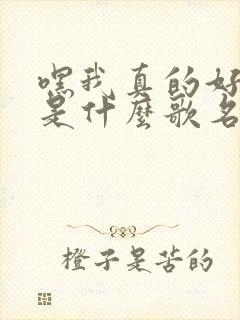 嘿我真的好
是什麼歌名
橙子是苦的